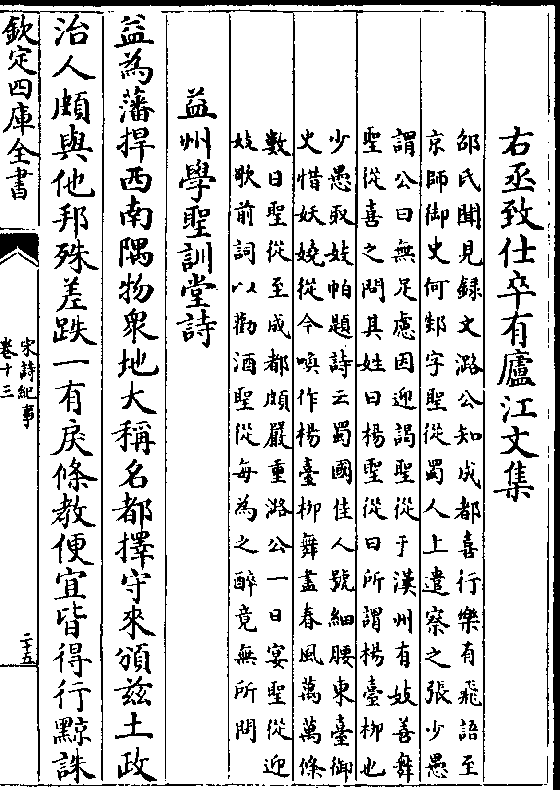 右丞致仕卒有廬江文集
邵氏聞見録文潞公知成都喜行樂有飛語至
京師御史何郯字聖從蜀人上遣察之張少愚
謂公曰無足慮因迎謁聖從于漢州有妓善舞
聖從喜之問其姓曰楊聖從曰所謂楊臺柳也
少愚取妓帕題詩云蜀國佳人號細腰東臺御
史惜妖嬈從今喚作楊臺柳舞盡春風萬萬條
數日聖從至成都頗嚴重潞公一日宴聖從迎
妓歌前詞以勸酒聖從每為之醉竟無所問
益州學聖訓堂詩
益為藩捍西南隅物衆地大稱名都擇守來頒兹土政
治人頗與他邦殊差跌一有戾條教便宜皆得行黥誅
欽定四庫全書
宋詩紀事
卷十三
二十五